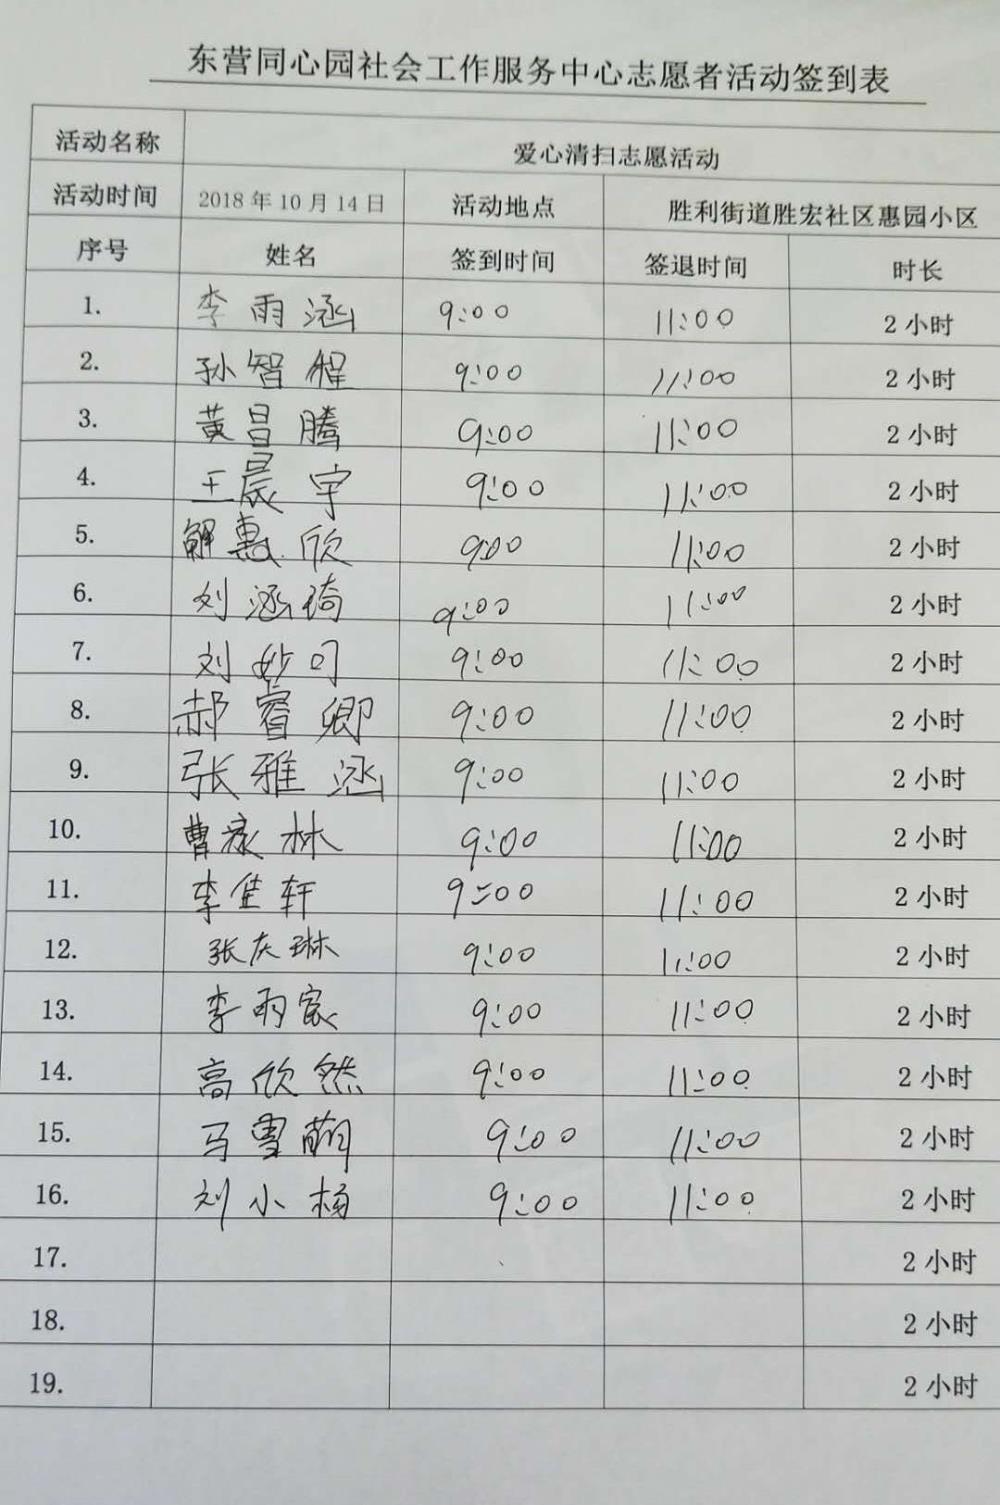 东营同心园社会工作服务中心志愿者活动签到表
活动名称 爱心清扫志愿活动
活动时间 2018年10月14日 活动地点 胜利街道胜宏社区惠园小区
序号 姓名 签到时间 签退时间 时长
1. 李雨涵 9:00 11:00 2小时
2. 孙智程 9:00 11:00 2小时
3. 黄昌腾 9:00 11:00 2小时
4. 王晨宇 9:00 11:00 2小时
5. 解惠欣 9:00 11:00 2小时
6. 刘涵琦 9:00 11:00 2小时
7. 刘妙可 9:00 11:00 2小时
8. 郝睿卿 9:00 11:00 2小时
9. 张雅涵 9:00 11:00 2小时
10. 曹林 9:00 11:00 2小时
11. 李佳轩 9:00 11:00 2小时
12. 张庆琳 9:00 11:00 2小时
13. 李雨宸 9:00 11:00 2小时
14. 高欣然 9:00 11:00 2小时
15. 马雪萌 9:00 11:00 2小时
16. 刘小杨 9:00 11:00 2小时
17. 2小时
18. 2小时
19. 2小时